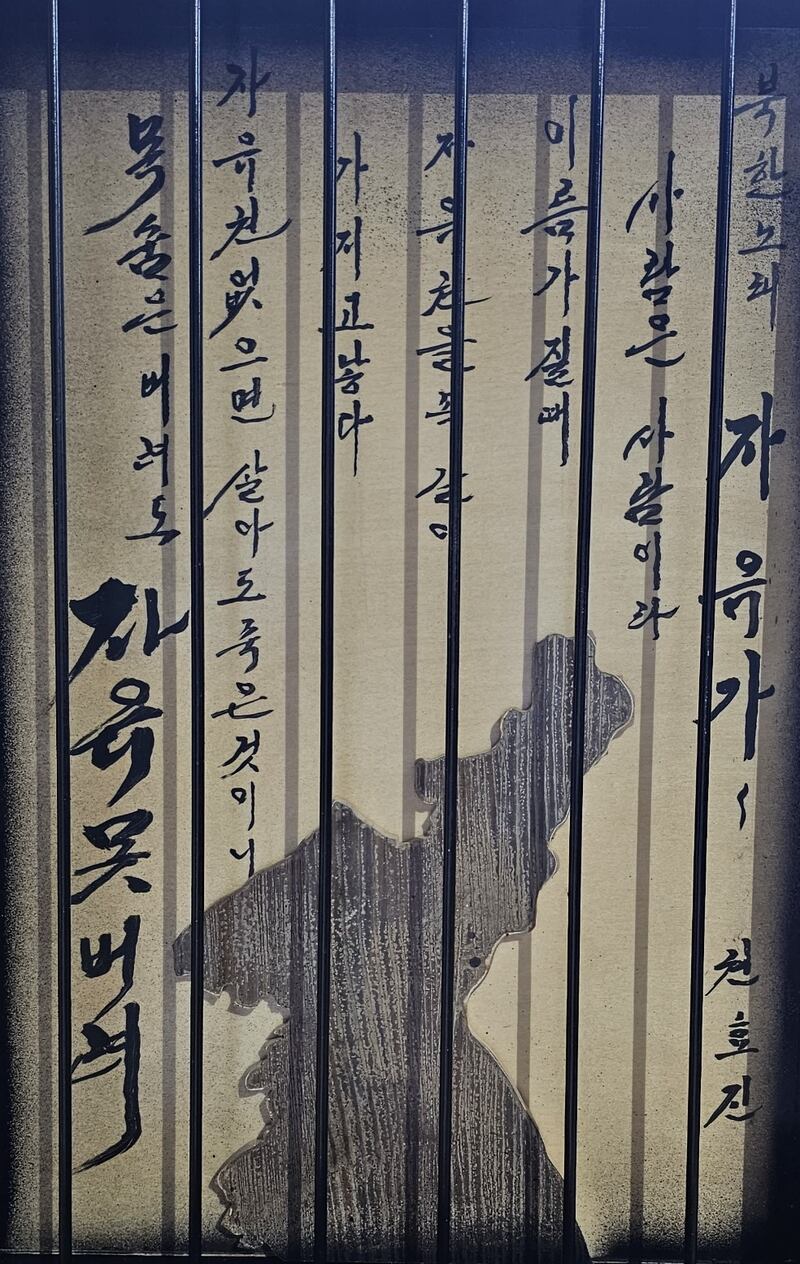 북한 노래 자유가 권효진
사람은 사람이라
이름 가질때
자유권을 똑 같이
가지고 낳다
자유권 없으면 살아도 죽은것이니
목숨은 버려도 자유 못 버려